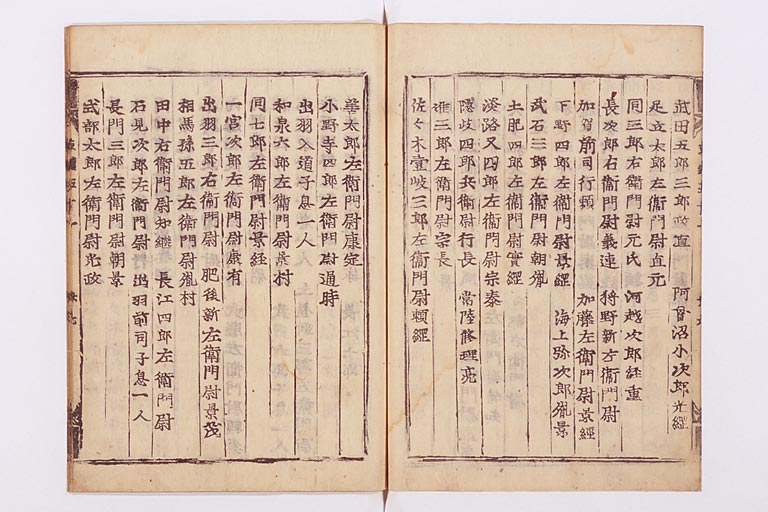 武田五郎三郎政直 阿曽沼小次郎光経
足立太郎左衛門尉直元
同三郎右衛門尉元氏 河越次郎経重
長次郎右衛門尉義連 狩野新左衛門尉
加賀前司行頼 加藤左衛門尉景経
下野四郎左衛門尉景経 海上弥次郎胤景
武石三郎左衛門尉朝胤
土肥四郎左衛門尉實經
淡路又四郎左衛門尉宗泰
隱岐四郎兵衛尉行長 常陸修理亮
進三郎左衛門尉宗長
佐々木壹岐三郎左衛門尉頼經
華太郎左衛門尉康定
小野寺四郎左衛門尉通時
出羽入道子息一人
和泉六郎左衛門尉景村
同七郎左衛門尉景経
一宮次郎左衛門尉康有
出羽三郎右衛門尉 肥後新左衛門尉景茂
相馬孫五郎左衛門尉胤村
田中右衛門尉知継 長江四郎左衛門尉
石見次郎左衛門尉 出羽前司子息一人
長門三郎左衛門尉朝景
式部太郎左衛門尉光政